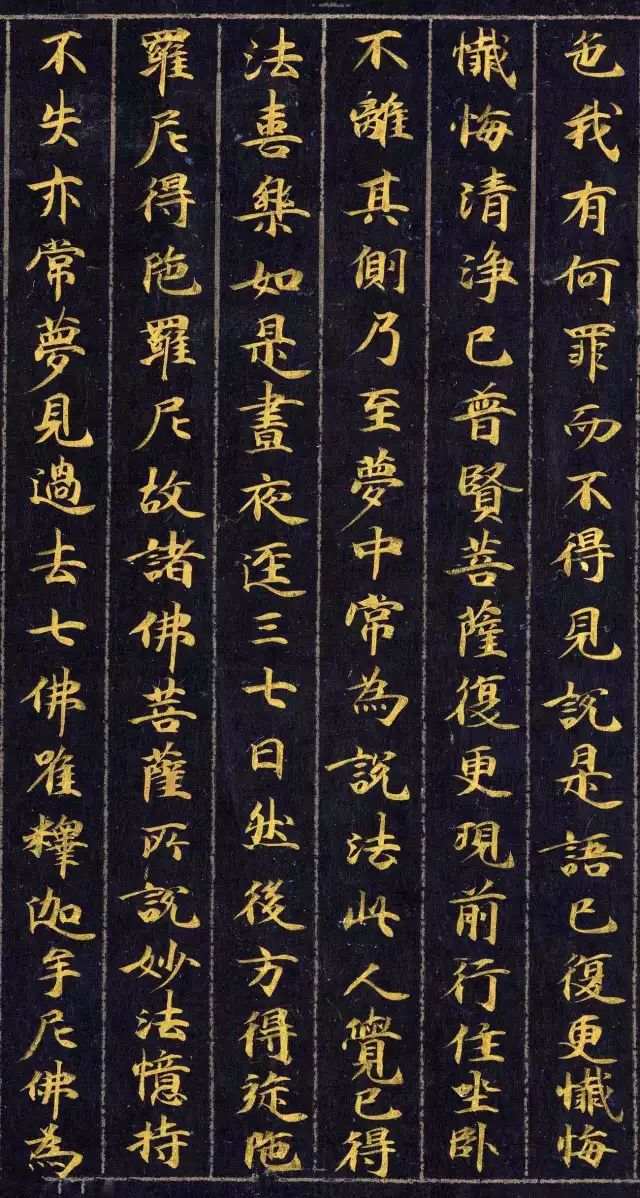 色我有何罪而不得見說是語已復更懺悔
懺悔清淨已普賢菩薩復更現前行住坐卧
不離其側乃至夢中常為說法此人覺已得
法喜樂如是晝夜逕三七日然後方得旋陁
羅尼得陁羅尼故諸佛菩薩所說妙法憶持
不失亦常夢見過去七佛唯釋伽牟尼佛為